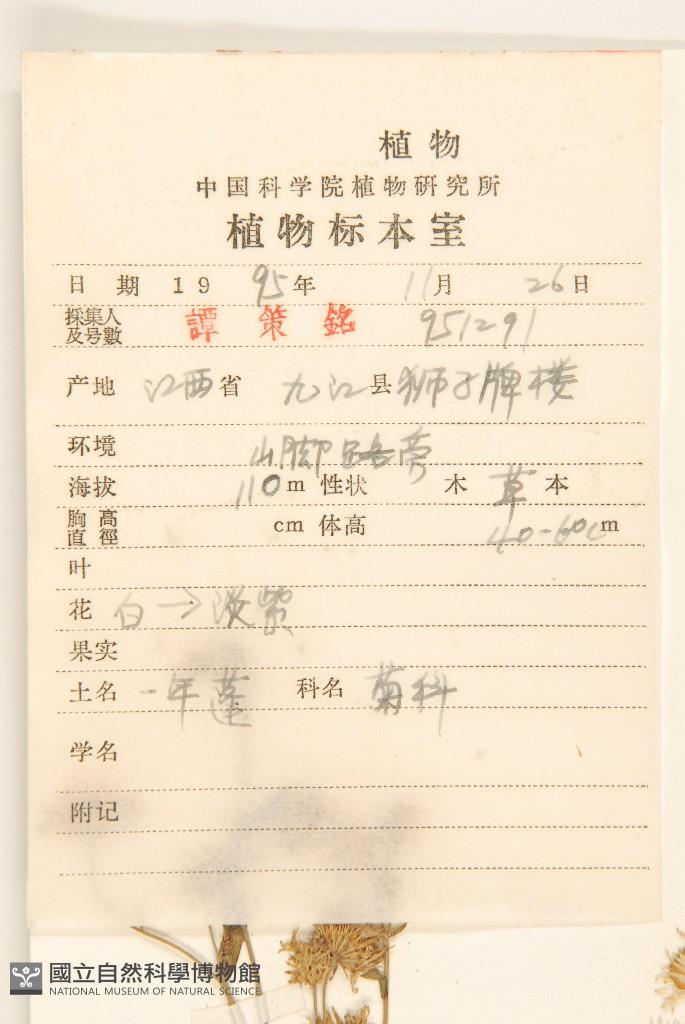 植物
中国科学院植物研究所
植物标本室
日期 19 95年 11月 26日
採集人及号數 譚策銘 951291
产地 江西省 九江县 狮子牌楼
环境 山脚路旁
海拔 110m 性状 木 草 本
胸高直徑 cm 体高 40-60cm
叶
花 白→淡紫
果实
土名 一年蓬 科名 菊科
学名
附记
國立自然科學博物館
NATIONAL MUSEUM OF NATURAL SCIENCE